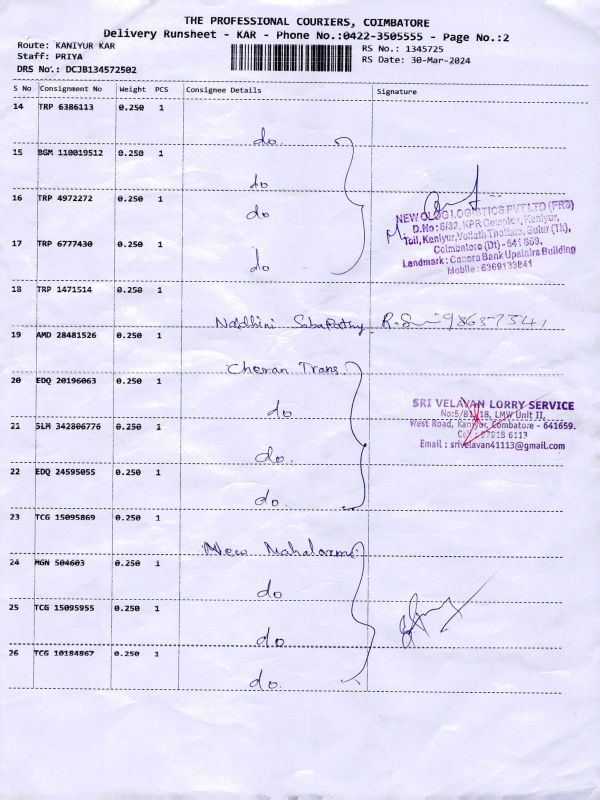 THE PROFESSIONAL COURIERS, COIMBATORE
Delivery Runsheet - KAR - Phone No.:0422-3505555 - Page No.:2
Route: KANIYUR KAR
RS No.: 1345725
Staff: PRIYA
RS Date: 30-Mar-2024
DRS No.: DCJB134572502
S No Consignment No Weight PCS Consignee Details Signature
14 TRP 6386113 0.250 1
do.
15 BGM 110019512 0.250 1
do
16 TRP 4972272 0.250 1
do
NEW OLOG LOGISTICS PVT LTD (FRS)
D.No: 6/32, KPR Complex, Kaniyur,
17 TRP 6777430 0.250 1
Toll, Kaniyur, Thottam, Sulur (Tk),
Coimbatore (Dt) - 641 659.
Landmark : Canara Bank Upstairs Building
Mobile : 6369133841
do
18 TRP 1471514 0.250 1
Nandhini Sabapathy R.
19 AMD 28481526 0.250 1
Cheran Trans.
20 EDQ 20196063 0.250 1
do
SRI VELAVAN LORRY SERVICE
No:5/81 18, LMW Unit II,
21 SLM 342806776 0.250 1
West Road, Kaniyur, Combatore - 641659.
6113
Email : srivelavan41113@gmail.com
do.
22 EDQ 24595055 0.250 1
do.
23 TCG 15095869 0.250 1
New Mahalaxmi
24 MGN 504603 0.250 1
do
25 TCG 15095955 0.250 1
do
26 TCG 10184867 0.250 1
do.